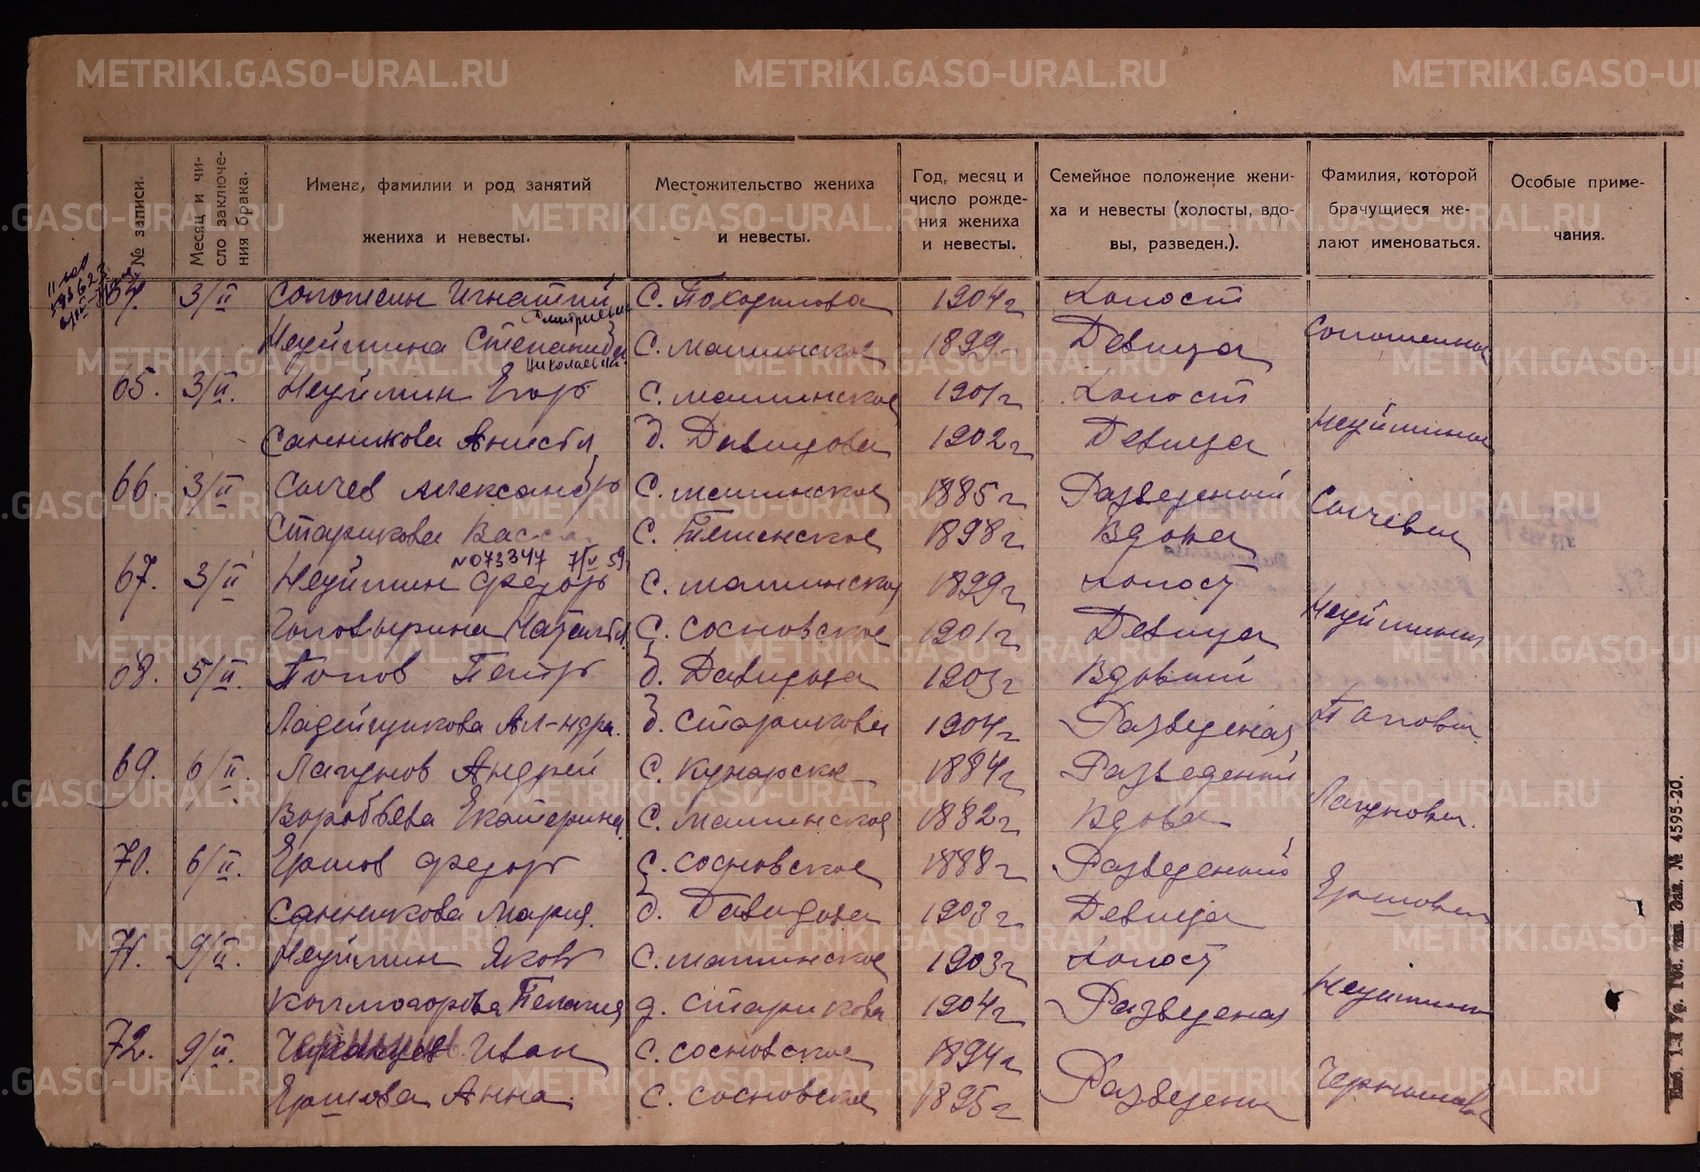 METRIKI.GASO-URAL.RU
№ записи.
Месяц и число заключения брака.
Имена, фамилии и род занятий жениха и невесты.
Местожительство жениха и невесты.
Год, месяц и число рождения жениха и невесты.
Семейное положение жениха и невесты (холосты, вдовы, разведен.).
Фамилия, которой брачущиеся желают именоваться.
Особые примечания.
64. 3/II Игнатий С. 1904 г Холост
Дмитриевич
Неуймина Степанида С. Маминское 1899 Девица
Николаевна
65. 3/II. Неуймин Егор С. Маминское 1901 г Холост
Санникова Д. Давыдова 1902 г Девица Неуймины
66. 3/II Сычев Александр С. Маминское 1885 г Разведеный
Старикова С. 1898 г Вдова Сычевы
№073347 59
67. 3/II Неуймин Федор С. Маминское 1899 г Холост
Головырина Наталья С. Сосновское 1901 г Девица Неуймины
68. 5/II. Попов Петр Д. Давыдова 1903 г Вдовый
Ладейщикова Ал-ндра. Д. Старикова 1904 г Разведеная Поповы
69. 6/II. Лагунов Андрей С. Кунарское 1884 г Разведеный
Воробьева Екатерина С. Маминское 1882 г Вдова Лагуновы.
70. 6/II. Ершов Федор С. Сосновское 1888 г Разведеный
Санникова Мария. Д. Давыдова 1903 г. Девица Ершовы
71. 9/II. Неуймин Яков С. Маминское 1903 г Холост
Колмогорова Пелагия Д. Старикова 1904 г Разведеная Неуймины
72. 9/II. Иван С. Сосновское 1894 г
Ершова Анна. С. Сосновское 1895 г Разведены
Изд. 1-й Ур. Гос. тип. Зак. № 4595-20.